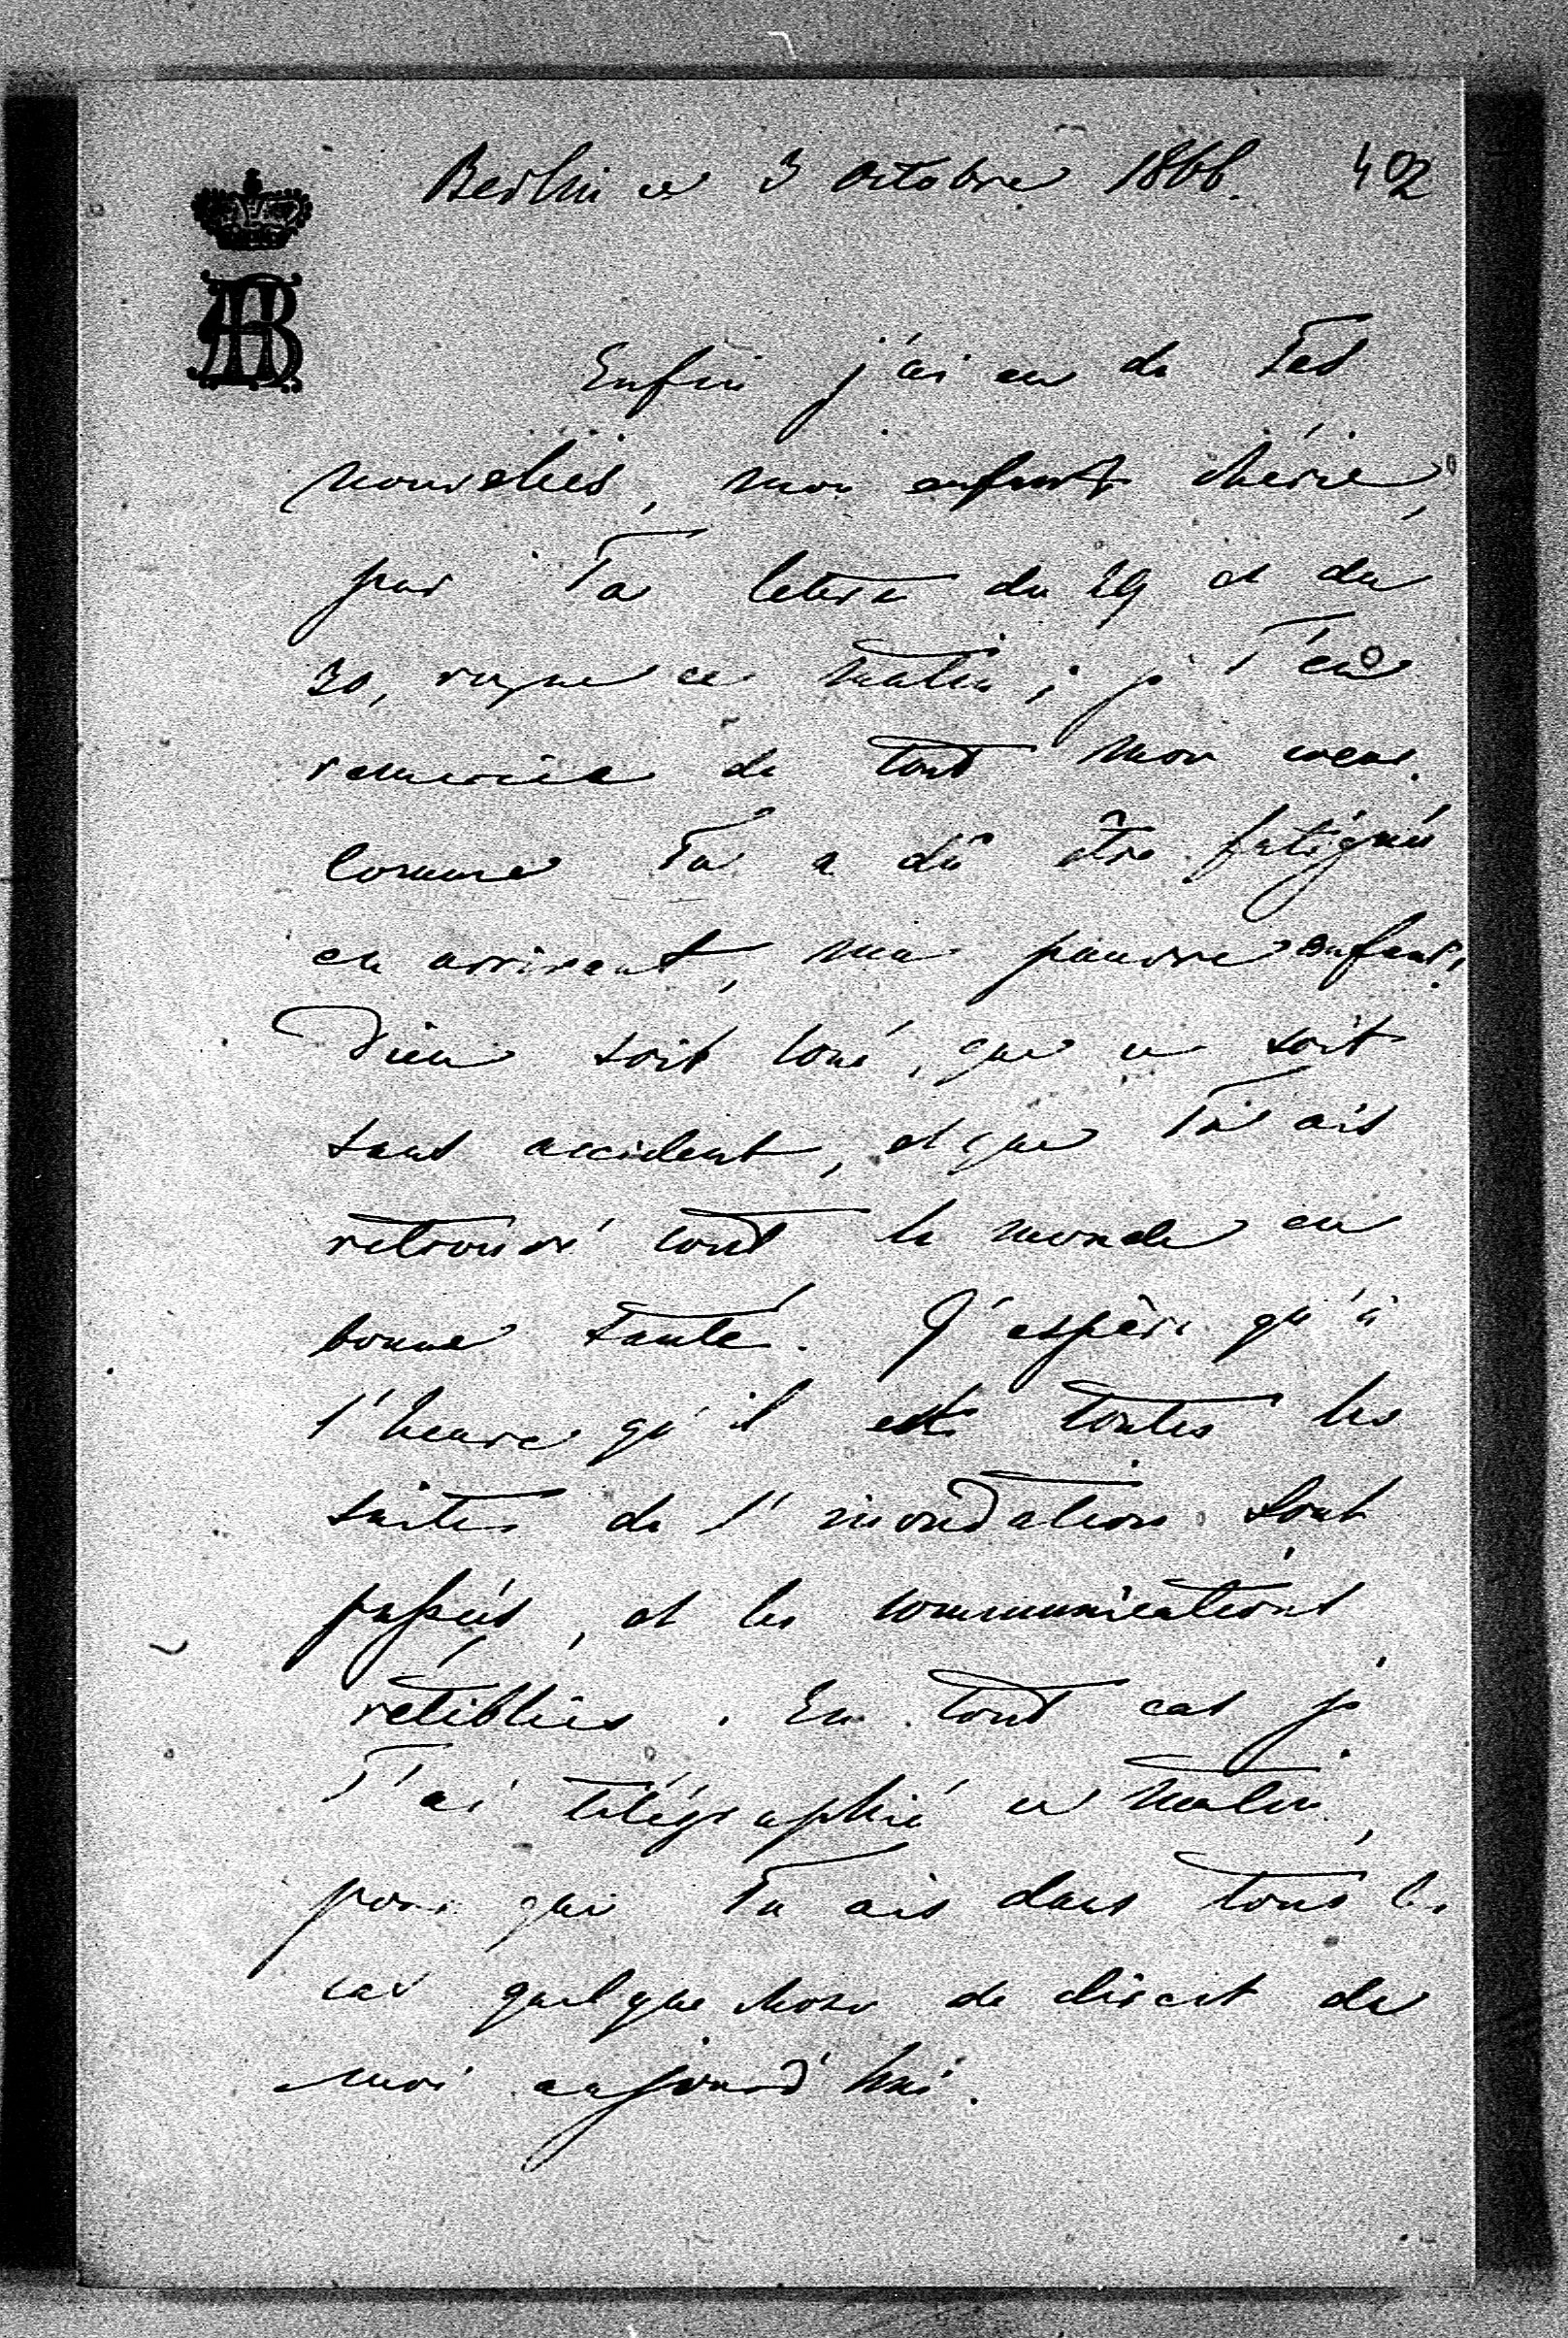 Berlin ce 3 Octobre 1868. 402
AB
Enfin j'ai eu de Tes
nouvelles, mon enfant chérie,
par Ta lettre du 29 et du
30, reçue ce matin; je T'en
remercie de tout mon coeur.
Comme Tu a dû être fatiguée
en arrivant, ma pauvre enfant.
Dieu soit loué, que ce soit
sans accident, et que Tu ais
retrouvé tout le monde en
bonne santé. J'espère qu'à
l'heure qu'il est toutes les
suites de l'inondation sont
passées, et les communications
retiblies. En tout cas je
T'ai télégraphié ce matin,
pour que Tu ais dans tous les
cas quelque chose de direct de
moi aujourd'hui.